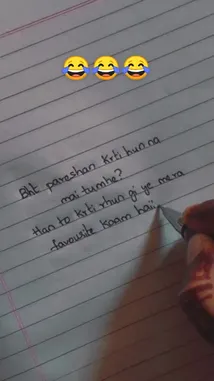 😂😂😂
Bht pareshan krti hun na
mai tumhe?
Han to krti rhun gi ye mera
favourite kaam haii